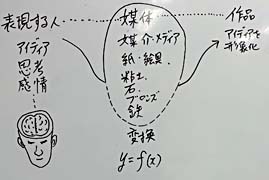 表現する人
アイディア
思考
感情
媒体
媒介・メディア
紙・絵具
粘土
石
ブロンズ
鉄
変換
y=f(x)
作品
アイディアを
形象化